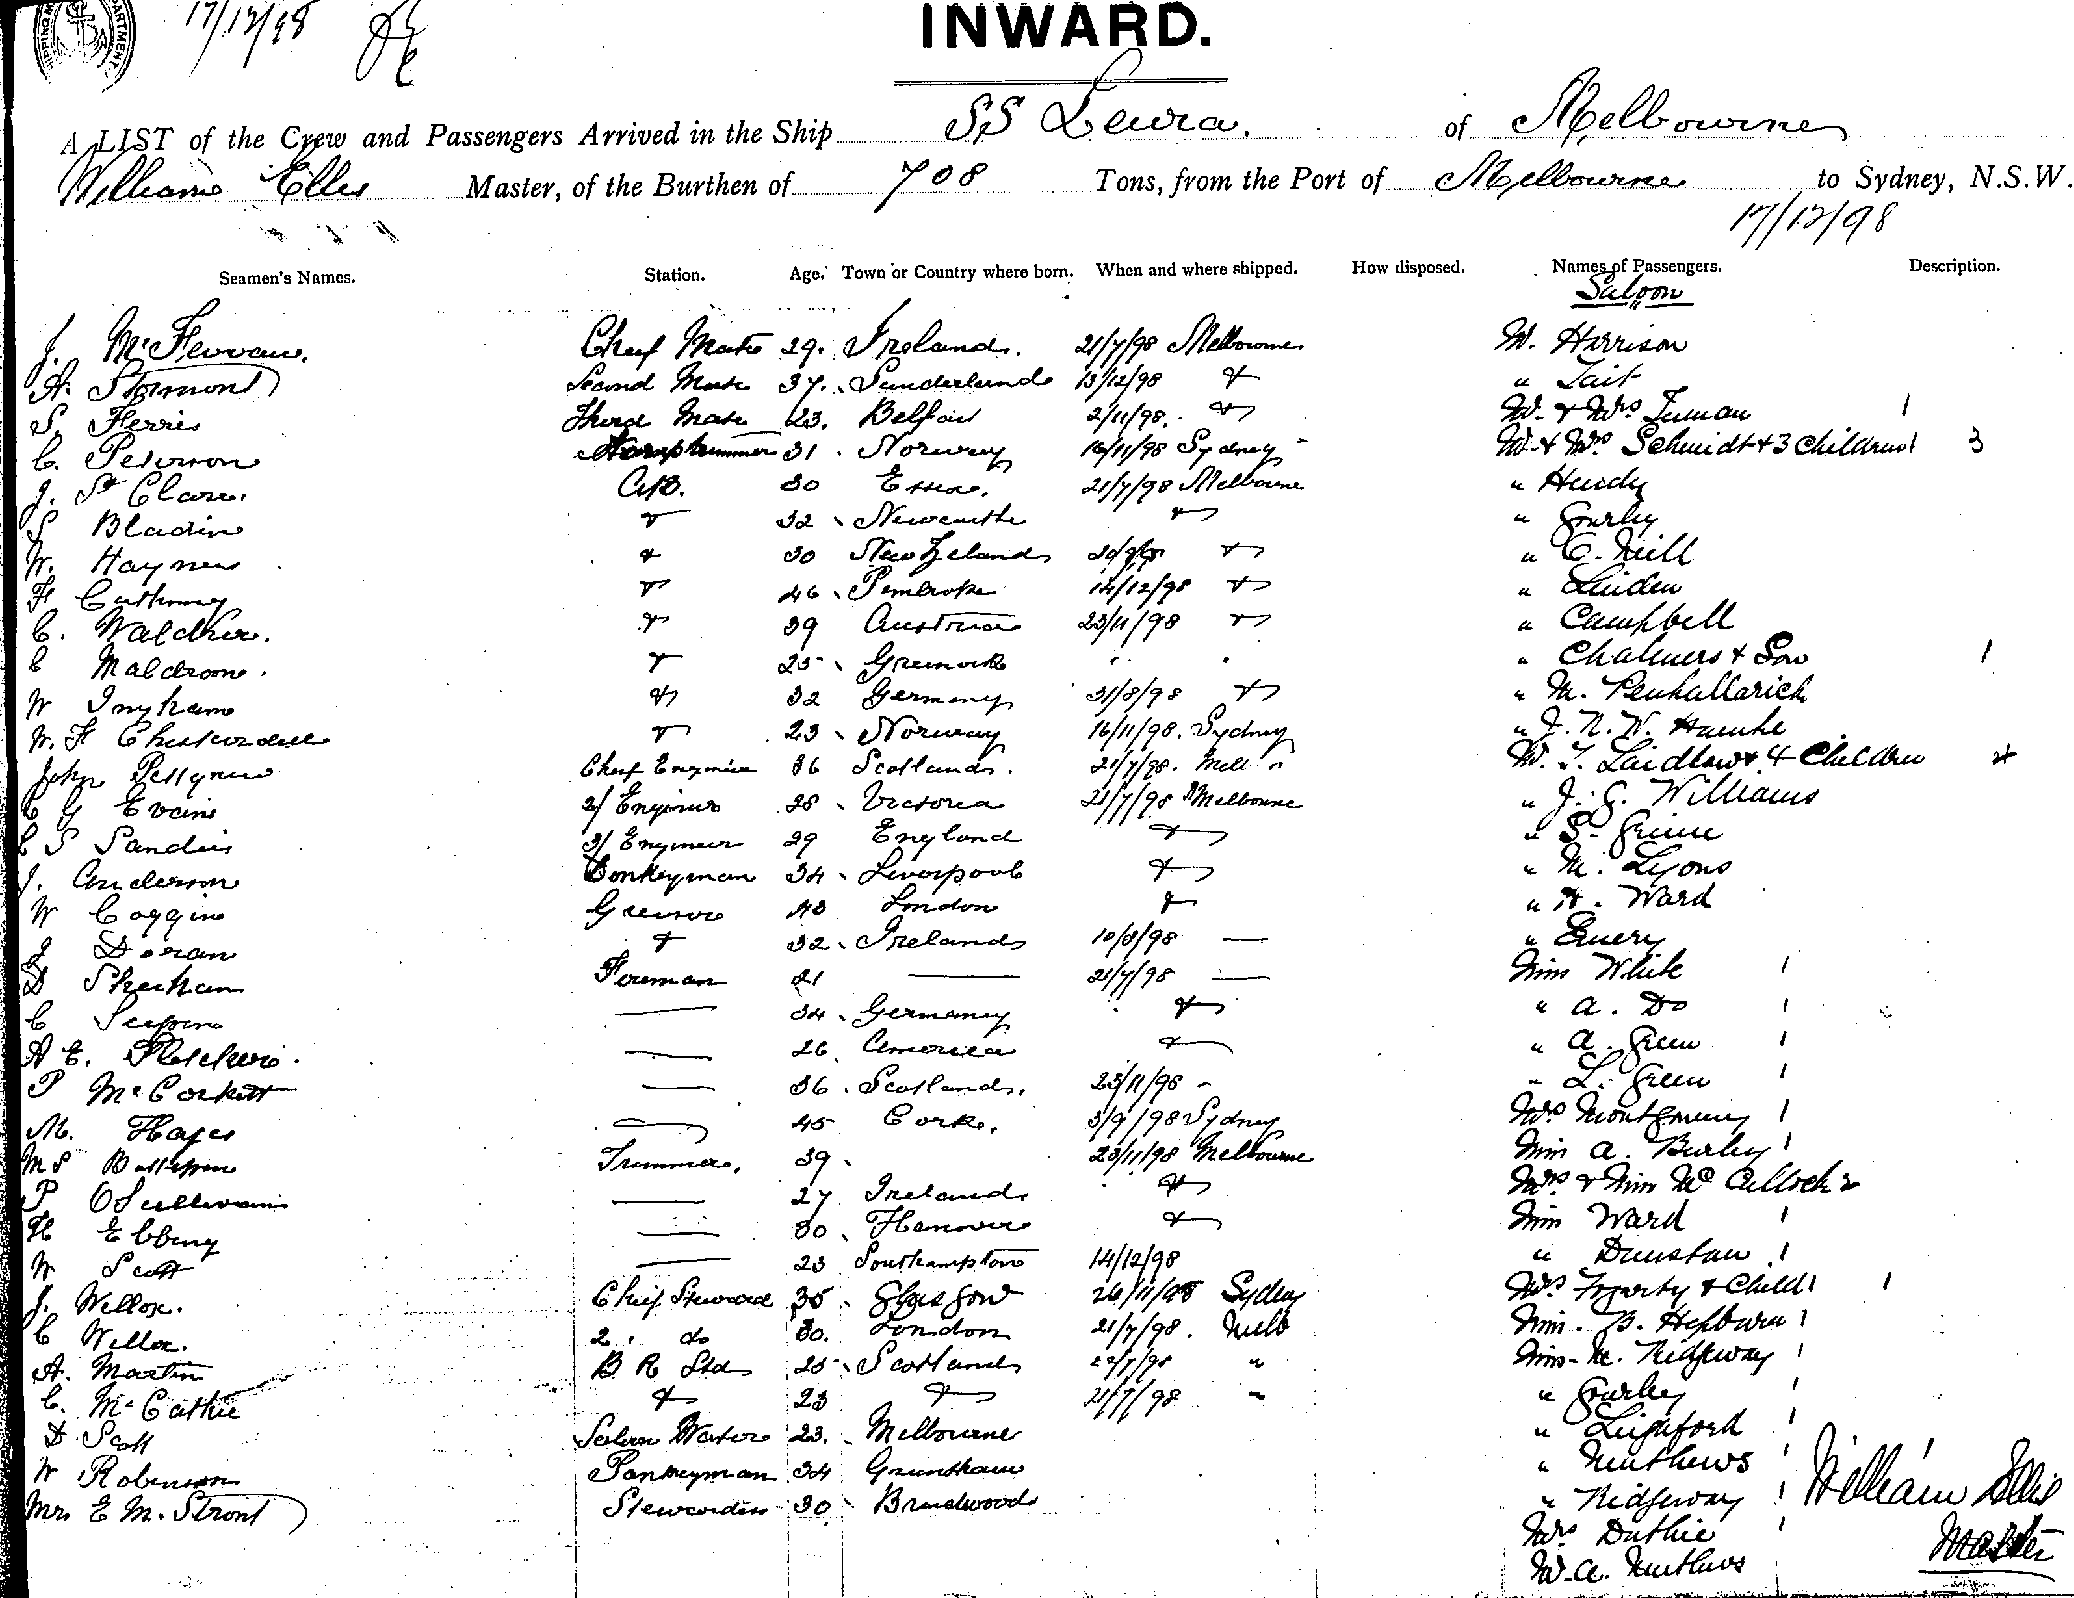 17/12/98
INWARD.
A LIST of the Crew and Passengers Arrived in the Ship SS Leura. of Melbourne
William Ellis Master, of the Burthen of 708 Tons, from the Port of Melbourne to Sydney, N.S.W.
17/12/98
Seamen's Names. Station. Age. Town or Country where born. When and where shipped. How disposed. Names of Passengers. Description.
Saloon
J. Chief Mate 29. Ireland. 21/7/98 Melbourne M. Harrison
A. Stormont Second Mate 37. Sunderland 13/12/98 " " Tait
S. Ferris Third Mate 23. Belfast 2/11/98. " M. & Mrs Inman 1
C. Peterson 31. Norway 16/11/98 Sydney M. & Mrs Schmidt & 3 Children 1 3
J. St Clare. A.B. 30 Essex. 21/7/98 Melbourne " Hardy
S Bladin " 32 Newcastle " " Gourley
W. Haynes " 30 New Zeland " "
H " 46 Pembroke 14/12/98 " " Linden
C. " 39 Austria 23/11/98 " " Campbell
C Maldroom. " 25 Greenock " Chalmers & Son 1
W Ingham " 32 Germany 31/8/98 " " M. Penhallarick
W. H " 23 Norway 16/11/98. Sydney " J. R. W.
John Chief Engineer 36 Scotland. 21/7/98. Melb M. T. Laidlaw & 4 Children 4
C G Evans 2/ Engineer 28 Victoria 21/7/98 Melbourne " J. G. Williams
C S Sandes 3/ Engineer 29 England " " S.
J. Anderson Donkeyman 34 Liverpool " " M. Lyons
W Coggins Greaser 43 London " " A. Ward
J Doran " 32 Ireland 10/8/98 — " Emery
D Sheehan Fireman 21 — 21/7/98 — Miss White 1
C — 34 Germany " " A. Do 1
A E. Fletcher. — 26 America " " A. Green 1
P McCorkett — 36 Scotland. 23/11/98 " L. Green 1
M. Hayes — 45 Cork. 3/9/98 Sydney Mrs Montgomery 1
M S Trimmer. 39 23/11/98 Melbourne Miss A. Burley 1
P O'Sullivan — 27 Ireland " Mrs & Miss McCulloch 2
H Ebbing — 30 Hanover " Miss Ward 1
W Scott — 23 Southampton 14/12/98 " Dunstan 1
J. Wellox. Chief Steward 35 Glasgow 26/11/98 Sydney Mrs Fogarty & Child 1 1
C Wellox. 2. do 30. London 21/7/98. Melb Miss. B. Hepburn 1
A. Martin B R Std 25 Scotland " Miss M. Ridgeway 1
C. McCathie " 23 " 21/7/98 " " Gourley 1
D Scott Saloon Waiter 23. Melbourne " 1
W Robinson Pantryman 34 Grantham " Mathews 1
Mrs E M. Stront Stewardess 30 Braidwood " Ridgeway 1
Mrs Duthie 1
M. A. Mathews
William Ellis
Master